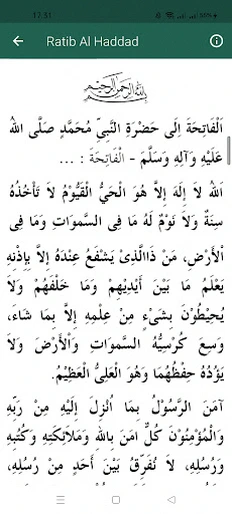 17.31
Ratib Al Haddad
بِسْمِ اللهِ الرَّحْمٰنِ الرَّحِيْمِ
اَلْفَاتِحَةَ اِلَى حَضْرَةِ النَّبِيِّ مُحَمَّدٍ صَلَّى اللهُ
عَلَيْهِ وَآلِهِ وَسَلَّمَ - الْفَاتِحَةَ : ...
اَللهُ لاَ إِلَهَ إِلاَّ هُوَ الْحَيُّ الْقَيُّوْمُ لاَ تَأْخُذُهُ
سِنَةٌ وَلاَ نَوْمٌ لَهُ مَا فِى السَّموَاتِ وَمَا فِى
الْأَرْضِ، مَنْ ذَاالَّذِىْ يَشْفَعُ عِنْدَهُ إِلاَّ بِإِذْنِهِ
يَعْلَمُ مَا بَيْنَ أَيْدِيْهِمْ وَمَا خَلْفَهُمْ وَلاَ
يُحِيْطُوْنَ بِشَىْءٍ مِنْ عِلْمِهِ إِلاَّ بِمَا شَاءَ،
وَسِعَ كُرْسِيُّهُ السَّموَاتِ وَالْأَرْضَ وَلاَ
يَؤُدُهُ حِفْظُهُمَا وَهُوَ الْعَلِىُّ الْعَظِيْمُ.
آمَنَ الرَّسُوْلُ بِمَا أُنْزِلَ إِلَيْهِ مِنْ رَبِّهِ
وَالْمُؤْمِنُوْنَ كُلٌّ امَنَ بِاللهِ وَمَلاَئِكَتِهِ وَكُتُبِهِ
وَرُسُلِهِ، لاَ نُفَرِّقُ بَيْنَ أَحَدٍ مِنْ رُسُلِهِ،